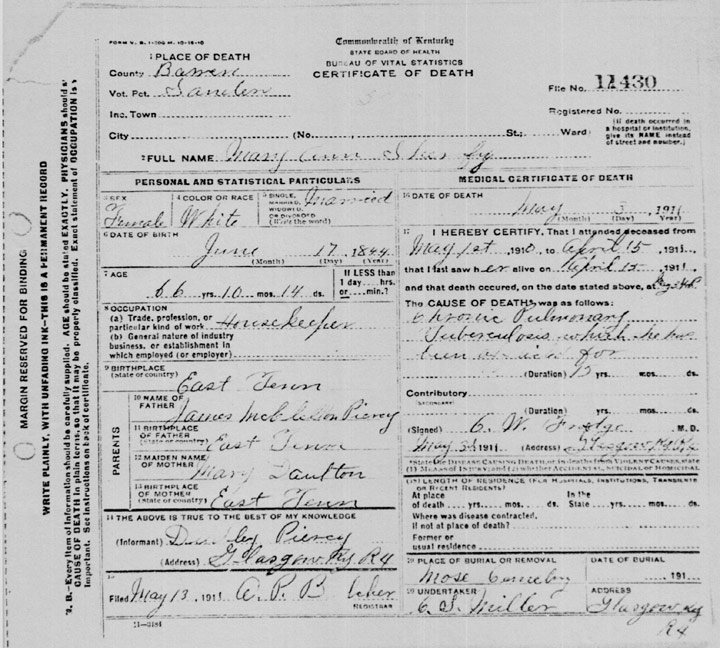 FORM V. S. 1-
Commonwealth of Kentucky
STATE BOARD OF HEALTH
BUREAU OF VITAL STATISTICS
CERTIFICATE OF DEATH
1 PLACE OF DEATH
County Barren
Vot. Pct.
Inc. Town
City (No. St.; Ward)
File No. 11430
Registered No.
(If death occurred in
a hospital or institution,
give its NAME instead
of street and number.)
2 FULL NAME Mary Ann
PERSONAL AND STATISTICAL PARTICULARS
3 SEX
Female
4 COLOR OR RACE
White
5 SINGLE,
MARRIED,
WIDOWED,
OR DIVORCED
(Write the word)
Married
6 DATE OF BIRTH
June 17 1844
(Month) (Day) (Year)
7 AGE
66 yrs. 10 mos. 14 ds.
If LESS than
1 day hrs.
or min.?
8 OCCUPATION
(a) Trade, profession, or
particular kind of work Housekeeper
(b) General nature of industry
business, or establishment in
which employed (or employer)
9 BIRTHPLACE
(State or country) East Tenn
PARENTS
10 NAME OF
FATHER James Piercy
11 BIRTHPLACE
OF FATHER
(State or country) East Tenn
12 MAIDEN NAME
OF MOTHER Mary Daulton
13 BIRTHPLACE
OF MOTHER
(State or country) East Tenn
14 THE ABOVE IS TRUE TO THE BEST OF MY KNOWLEDGE
(Informant) Piercy
(Address) Glasgow Ky R4
15
Filed May 13, 1911 A. P. B
REGISTRAR
MEDICAL CERTIFICATE OF DEATH
16 DATE OF DEATH
May 3, 1911
(Month) (Day) (Year)
17 I HEREBY CERTIFY, That I attended deceased from
May 1st 1910, to April 15, 1911,
that I last saw her alive on April 15, 1911,
and that death occured, on the date stated above, at
The CAUSE OF DEATH was as follows:
Chronic Pulmonary
Tuberculosis which she has
been for
(Duration) yrs. mos. ds.
Contributory
(SECONDARY)
(Duration) yrs. mos. ds.
(Signed) C. W. M. D.
May 3, 1911 (Address) Glasgow Ky
State the DISEASE CAUSING DEATH, or, in deaths from VIOLENT CAUSES, state
(1) MEANS OF INJURY; and (2) whether ACCIDENTAL, SUICIDAL OR HOMICIDAL
18 LENGTH OF RESIDENCE (FOR HOSPITALS, INSTITUTIONS, TRANSIENTS
OR RECENT RESIDENTS)
At place
of death yrs. mos. ds.
In the
State yrs. mos. ds.
Where was disease contracted,
if not at place of death?
Former or
usual residence
19 PLACE OF BURIAL OR REMOVAL
DATE OF BURIAL
191
20 UNDERTAKER
C. S. Miller
ADDRESS
Glasgow Ky
R4
MARGIN RESERVED FOR BINDING
WRITE PLAINLY, WITH UNFADING INK—THIS IS A PERMANENT RECORD
N. B.—Every item of information should be carefully supplied. AGE should be stated EXACTLY. PHYSICIANS should s
CAUSE OF DEATH in plain terms, so that it may be properly classified. Exact statement of OCCUPATION is v
important. See instructions on back of certificate.